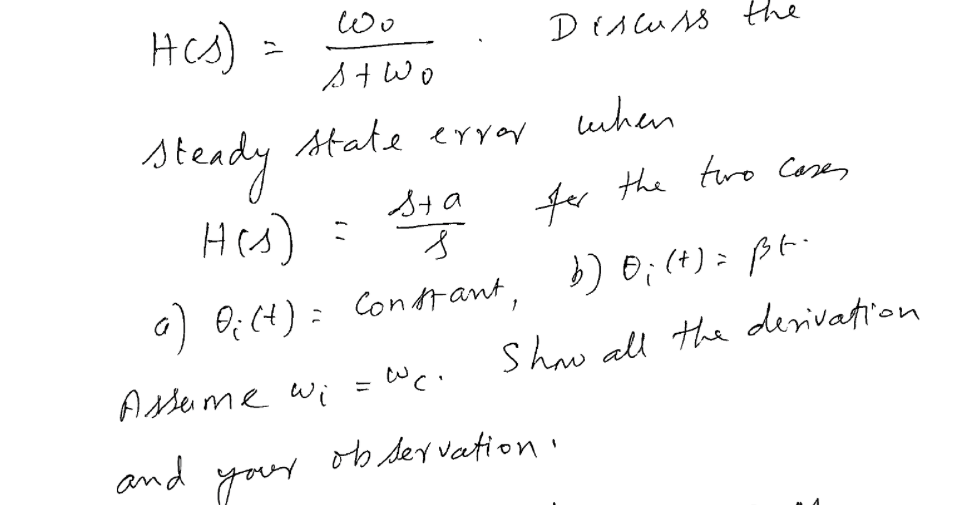 H(s) = ω₀ / (s+ω₀) . Discuss the
steady state error when
H(s) = (s+a) / s for the two cases
a) θᵢ(t) = constant, b) θᵢ(t) = βt.
Assume ωᵢ = ω_c. Show all the derivation
and your observation.